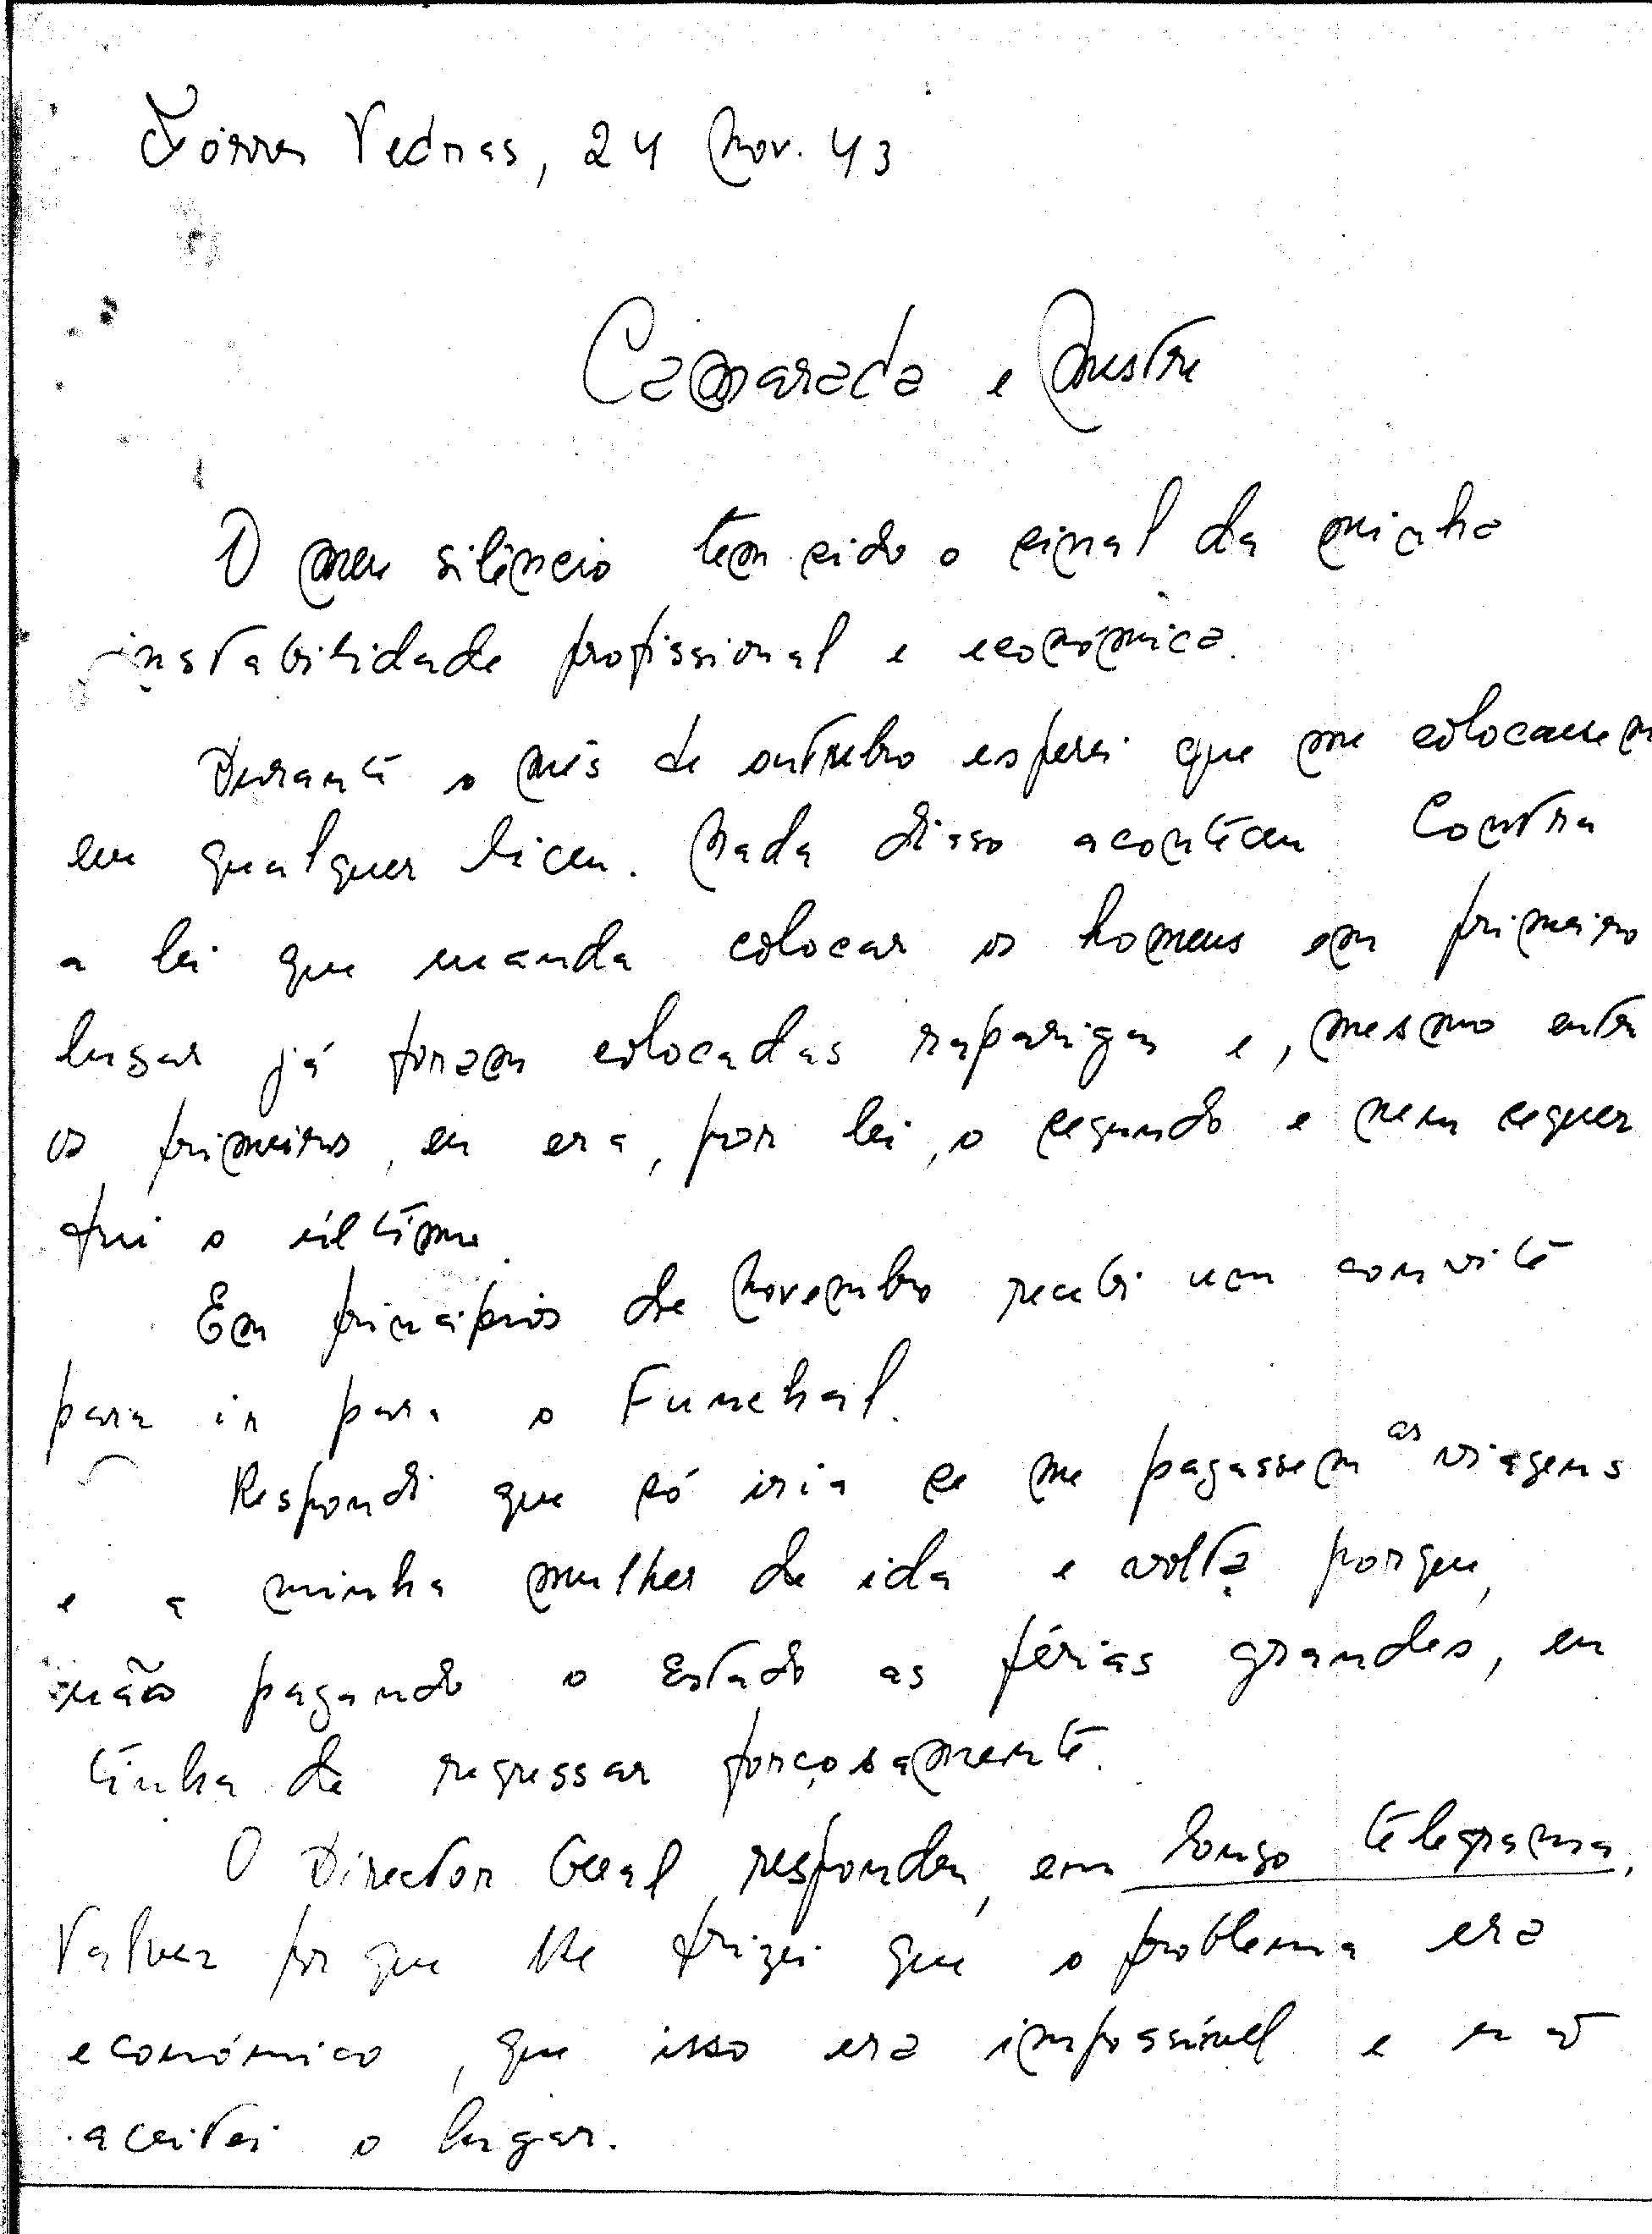 Tôrres Vedras, 24 Nov. 43
Camarada e Mestre
O meu silêncio tem sido o sinal da minha
instabilidade profissional e económica.
Durante o mês de outubro esperei que me colocassem
em qualquer liceu. Nada disso aconteceu. Contra
a lei que manda colocar os homens em primeiro
lugar já foram colocadas raparigas e, mesmo entre
os primeiros, eu era, por lei, o segundo e nem sequer
fui o último.
Em princípios de Novembro recebi um convite
para ir para o Funchal.
Respondi que só iria se me pagassem as viagens
e a minha mulher de ida e volta porque,
não pagando o Estado as férias grandes, eu
tinha de regressar forçosamente.
O Director Geral respondeu, em longo telegrama,
talvez por que lhe frizei que o problema era
económico, que isso era impossível e não
aceitei o lugar.